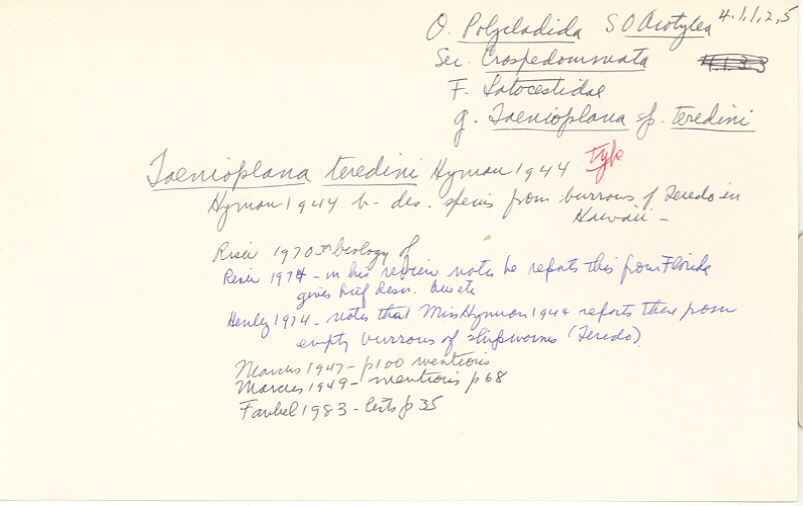 O. Polycladida S O Acotylea 4.1.1.2.5
Sec. Craspedommata
F. Latocestidae
g. Taenioplana sp. teredini
Taenioplana teredini Hyman 1944 type
Hyman 1944 b- des. species from burrows of Teredo in
Hawaii -
Riser 1970 biology of
Riser 1974 - in his review notes he reports this from Florida
gives brief descr.
Henley 1974 - notes that Miss Hyman 1944 reports these from
empty burrows of shipworms (Teredo).
Marcus 1947 - p100 mentions
Marcus 1949 - mentions p68
Faubel 1983 - lists p 35